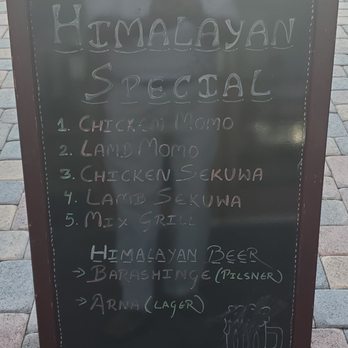 HIMALAYAN
SPECIAL
1. CHICKEN MOMO
2. LAMD MOMO
3. CHICKEN SEKUWA
4. LAMD SEKUWA
5. MIX GRILL
HIMALAYAN BEER
→ BARASHINGE (PILSNER)
→ ARNA (LAGER)